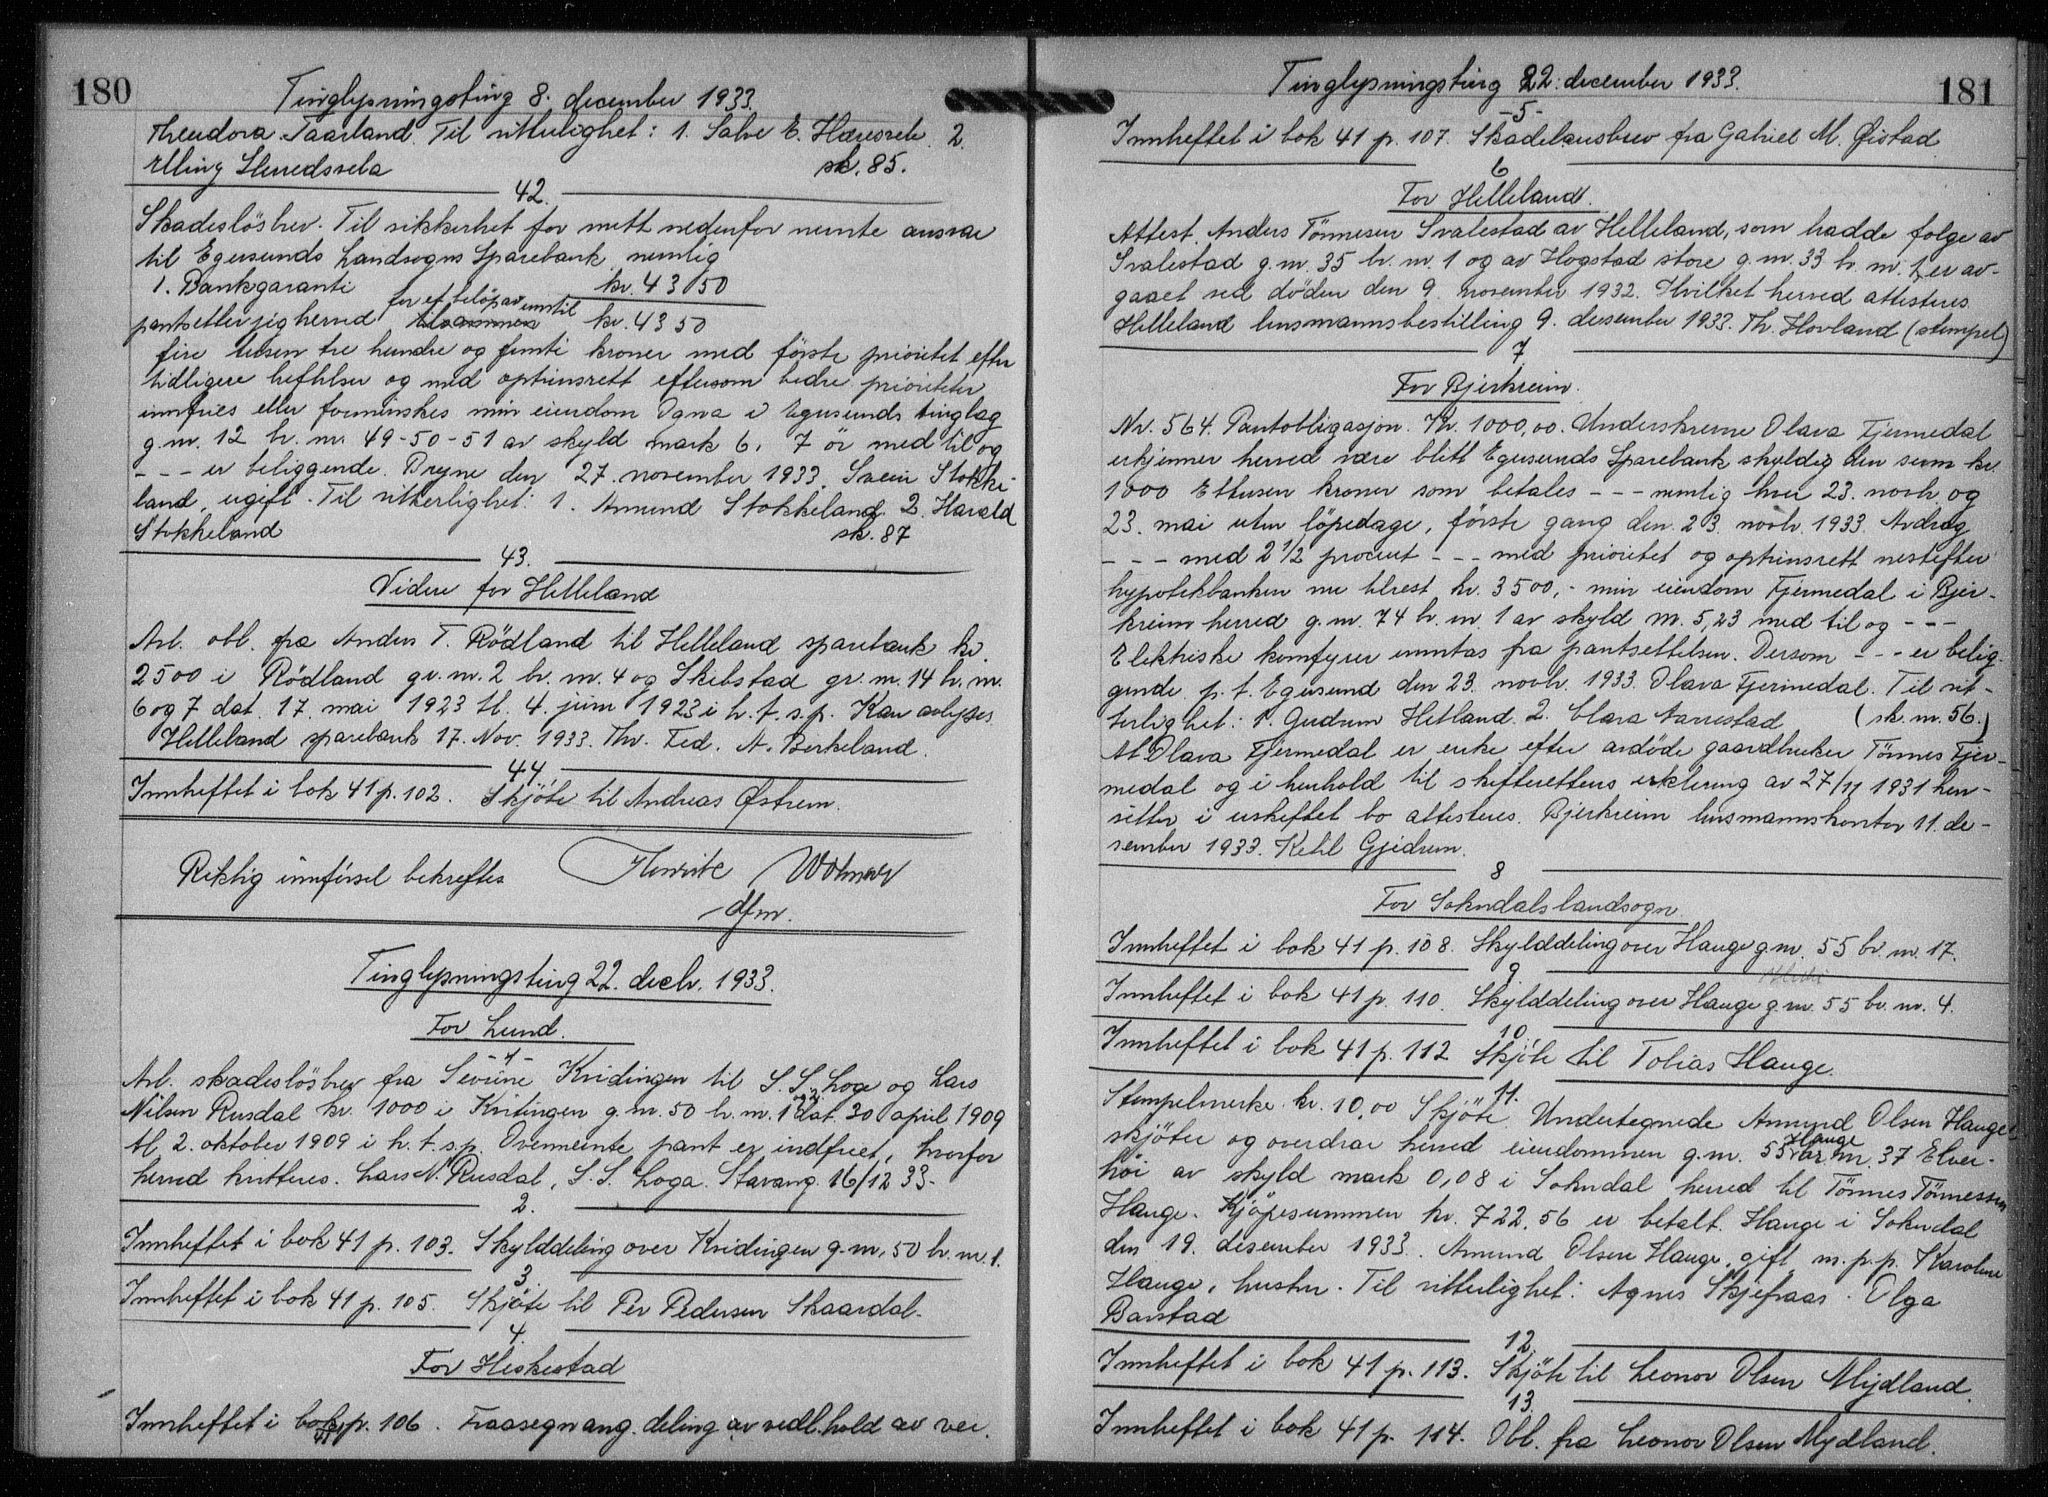 180
Tinglysningsting 8. december 1933.
Theodora Taarland. Til vitterlighet: 1. Salve E. 2.
Elling sk. 85.
42.
Skadeslösbrev. Til sikkerhet for mitt nedenfor nevnte ansvar
til Egersunds Landsogns Sparebank nemlig
1. Bankgaranti kr. 4350
pantsetter jeg herved for et beløp av inntil kr. 4350
fire tusen tre hundre og femti kroner med förste prioritet efter
tidligere heftelser og med optrinsrett eftersom bedre prioriteter
innfries eller forminskes min eiendom Ogna i Egersunds tinglag
g.nr. 12 br.nr. 49-50-51 av skyld mark 6. 7 ör med til og
- - - er beliggende. Bryne den 27. november 1933. Svein Stokke-
land, ugift. Til vitterlighet: 1. Amund Stokkeland 2. Harald
Stokkeland sk. 87
43.
Videre for Helleland
Avl. obl. fra Anders T. Rödland til Helleland sparebank kr.
2500 i Rödland gr.nr. 2 br.nr. 4 og Skibstad gr.nr. 14 br.nr.
6 og 7 dat. 17. mai 1923 tl. 4. juni 1923 i h.t.s.p. Kan avlyses.
Helleland sparebank 17. Nov. 1933. Thv. Fed. A. Berkeland.
44.
Innheftet i bok 41 p. 102. Skjöte til Andreas Østrem.
Riktig innförsel bekreftes
dfm.
Tinglysningsting 22. decbr. 1933.
For Lund.
-1-
Avl. skadeslösbrev fra Sevrine Kvidingen til S. S. Loge og Lars
Nilsen Rusdal kr. 1000 i Kvitingen g.nr. 50 br.nr. 1 og 2 dat. 30 april 1909
tl 2. oktober 1909 i h.t.s.p. Ovennevnte pant er indfriet, hvorfor
herved kvitteres. Lars N. Rusdal, S. S. Loga. Stavang. 16/12 33.
2.
Innheftet i bok 41 p. 103. Skylddeling over Kvidingen g.nr. 50 br.nr. 1.
3.
Innheftet i bok 41 p. 105. Skjöte til Per Pedersen Skaardal.
4.
For Heskestad
Innheftet i bok 41 p. 106. Fraasegn ang. deling av vedl.hold av vei.
181
Tinglysningsting 22. december 1933.
-5-
Innheftet i bok 41 p. 107. Skadelausbrev fra Gabriel M. Øistad
6
For Helleland.
Attest. Anders Tönnesen Svalestad av Helleland, som hadde folge av
Svalestad g.nr. 35 br.nr. 1 og av Hogstad store g.nr. 33 br.nr. 1, er av-
gaaet ved döden den 9. november 1932. Hvilket herved attesteres
Helleland lensmannsbestilling 9. desember 1933. Th. Hovland (stempel)
7
For Bjerkreim.
Nr. 564. Pantobligasjon. Kr. 1000,00. Underskrevne Olava Fjermedal
erkjenner herved være blitt Egersunds Sparebank skyldig den sum kr.
1000 Ettusen kroner som betales - - - nemlig hver 23. novbr og
23. mai uten löpedage, förste gang den 23. novbr. 1933. Avdrag
- - - med 2 1/2 procent - - - med prioritet og optrinsrett nestefter
hypotekbanken nu tilrest kr. 3500,- min eiendom Fjermedal i Bjer-
kreim herred g.nr. 74 br.nr. 1 av skyld m. 5,23 med til og - - -
Elektriske komfyrer unntas fra pantsettelsen. Dersom - - - er belig-
gende p.t. Egersund den 23. novbr. 1933. Olava Fjermedal. Til vit-
terlighet: 1. Gudrun Hetland. 2. Clara Aarrestad (sk. nr. 56.)
At Olava Fjermedal er enke efter avdöde gaardbruker Tönnes Fjer-
medal og i henhold til skifterettens erklering av 27/11 1931 hen-
sitter i uskiftet bo attesteres. Bjerkreim lensmannskontor 11. de-
sember 1933. Ketil Gjedrem.
8
For Sokndals landsogn.
Innheftet i bok 41 p. 108. Skylddeling over Hauge g.nr. 55 br.nr. 17.
9.
Innheftet i bok 41 p. 110. Skylddeling over Hauge g.nr. 55 br.nr. 4.
10.
Innheftet i bok 41 p. 112 Skjöte til Tobias Hauge.
11.
Stempelmerke kr. 10,00 Skjöte. Undertegnede Amund Olsen Hauge
skjöter og overdrar herved eiendommen g.nr. 55 Hauge br.nr. 37 Elver-
höi av skyld mark 0,08 i Sokndal herred til Tönnes Tönnessen
Hauge. Kjöpesummen kr. 722,56 er betalt. Hauge i Sokndal
den 19. desember 1933. Amund Olsen Hauge, gift m.p.p. Karoline
Hauge, hustru. Til vitterlighet: Agnes Skjefraas. Olga
Barstad
12.
Innheftet i bok 41 p. 113. Skjöte til Leonor Olsen Mydland.
13.
Innheftet i bok 41 p. 114. Obl. fra Leonor Olsen Mydland.